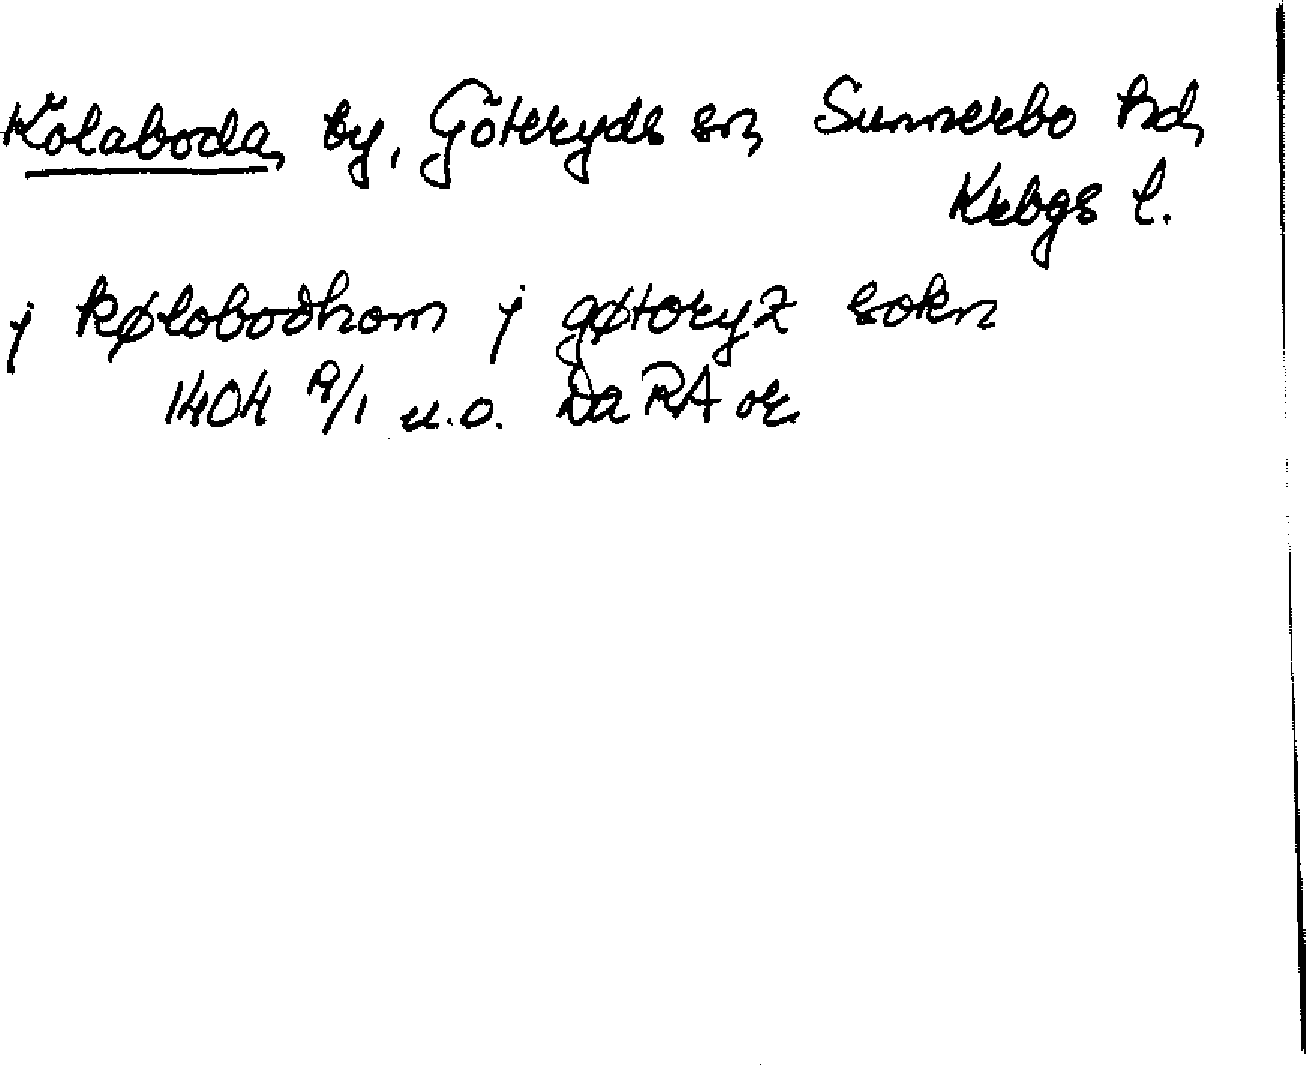 Kölaboda, by, Göteryds sn, Sunnerbo hd,
Krbgs l.
j kølabodhom j gøtoryz sokn
1404 19/1 u.o. Da RA or.